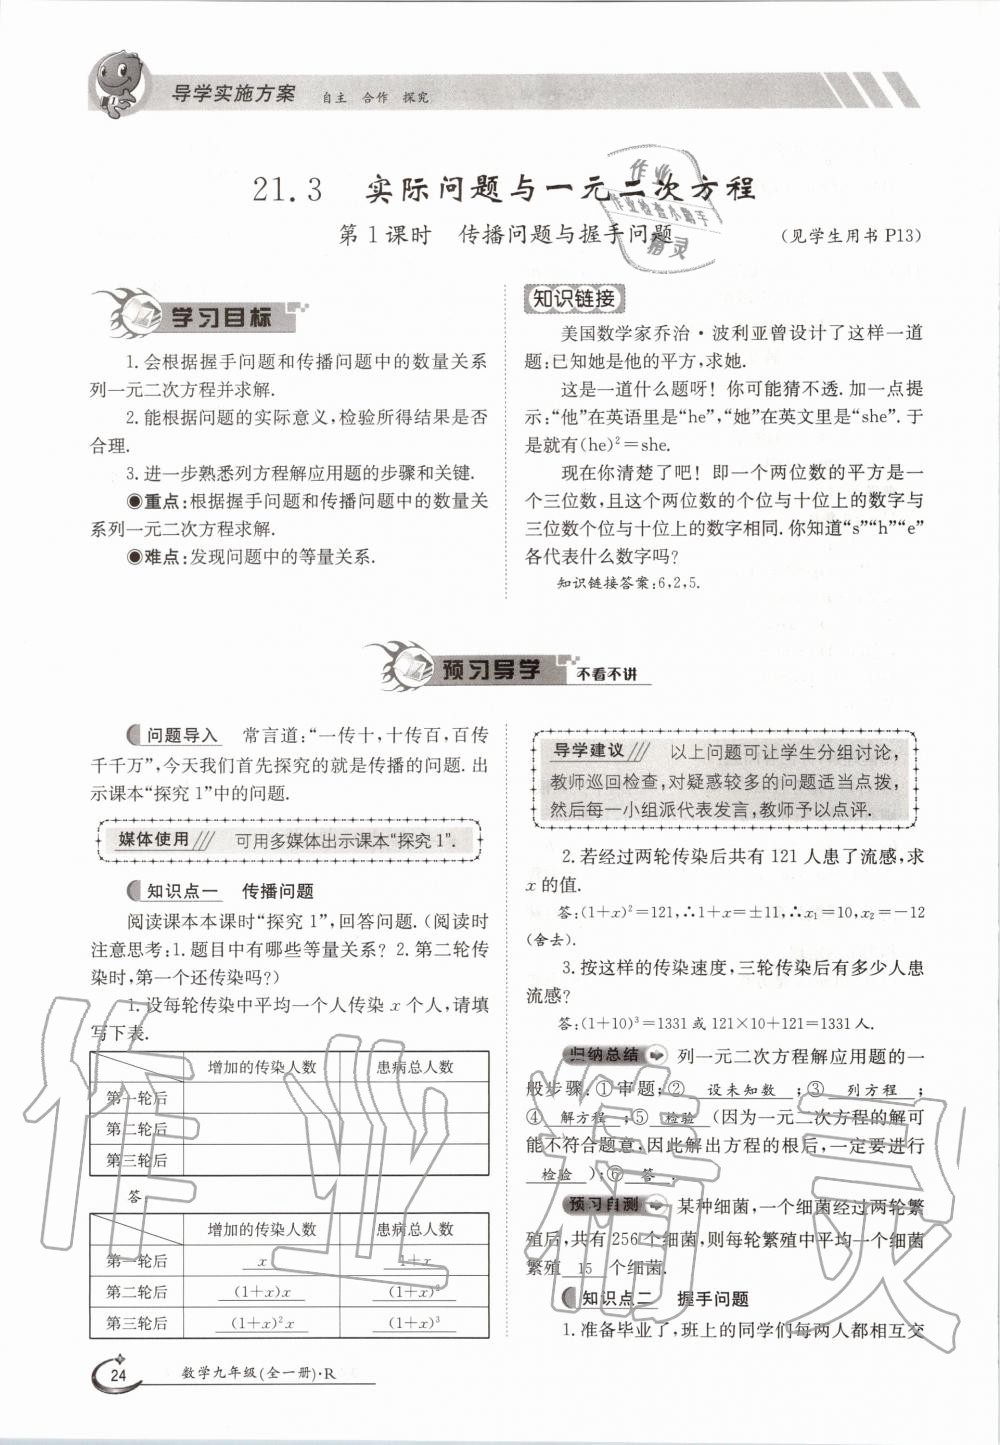 导学实施方案 自主 合作 探究
21.3 实际问题与一元二次方程
第1课时 传播问题与握手问题 (见学生用书P13)
作业
作业检查小助手
精灵
学习目标
1.会根据握手问题和传播问题中的数量关系
列一元二次方程并求解.
2.能根据问题的实际意义,检验所得结果是否
合理.
3.进一步熟悉列方程解应用题的步骤和关键.
◉重点:根据握手问题和传播问题中的数量关
系列一元二次方程求解.
◉难点:发现问题中的等量关系.
知识链接
美国数学家乔治·波利亚曾设计了这样一道
题:已知她是他的平方,求她.
这是一道什么题呀!你可能猜不透.加一点提
示:“他”在英语里是“he”,“她”在英文里是“she”.于
是就有(he)²=she.
现在你清楚了吧!即一个两位数的平方是一
个三位数,且这个两位数的个位与十位上的数字与
三位数个位与十位上的数字相同.你知道“s”“h”“e”
各代表什么数字吗?
知识链接答案:6,2,5.
预习导学 不看不讲
问题导入 常言道:“一传十,十传百,百传
千千万”,今天我们首先探究的就是传播的问题.出
示课本“探究1”中的问题.
媒体使用 可用多媒体出示课本“探究1”.
知识点一 传播问题
阅读课本本课时“探究1”,回答问题.(阅读时
注意思考:1.题目中有哪些等量关系?2.第二轮传
染时,第一个还传染吗?)
1.设每轮传染中平均一个人传染x个人,请填
写下表.
增加的传染人数 患病总人数
第一轮后
第二轮后
第三轮后
答:
增加的传染人数 患病总人数
第一轮后 x 1+x
第二轮后 (1+x)x (1+x)²
第三轮后 (1+x)²x (1+x)³
导学建议 以上问题可让学生分组讨论,
教师巡回检查,对疑惑较多的问题适当点拨,
然后每一小组派代表发言,教师予以点评.
2.若经过两轮传染后共有121人患了流感,求
x的值.
答:(1+x)²=121,∴1+x=±11,∴x₁=10,x₂=-12
(舍去).
3.按这样的传染速度,三轮传染后有多少人患
流感?
答:(1+10)³=1331或121×10+121=1331人.
归纳总结 列一元二次方程解应用题的一
般步骤.①审题;② 设未知数 ;③ 列方程 ;
④ 解方程 ;⑤ 检验 (因为一元二次方程的解可
能不符合题意,因此解出方程的根后,一定要进行
检验 );⑥ 答 .
预习自测 某种细菌,一个细菌经过两轮繁
殖后,共有256个细菌,则每轮繁殖中平均一个细菌
繁殖 15 个细菌.
知识点二 握手问题
1.准备毕业了,班上的同学们每两人都相互交
24 数学九年级(全一册)·R
作业精灵